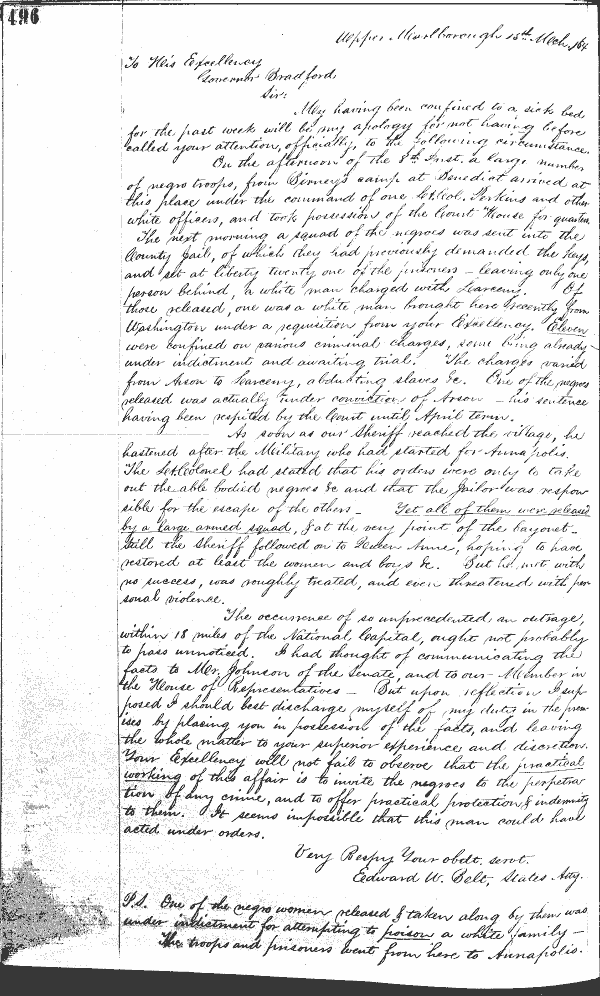 496
Upper Marlborough 15th Mch /64
To His Excellency
Governor Bradford,
Sir:
My having been confined to a sick bed
for the past week will be my apology for not having before
called your attention, officially, to the following circumstance.
On the afternoon of the 8th Inst. a large number
of negro troops, from Birney's camp at Benedict arrived at
this place under the command of one Lt. Col. Perkins and other
white officers, and took possession of the Court House for quarters.
The next morning a squad of the negroes was sent into the
County Jail, of which they had previously demanded the keys,
and set at liberty twenty one of the prisoners - leaving only one
person behind, a white man charged with Larceny. Of
those released, one was a white man brought here recently from
Washington under a requisition from your Excellency. Eleven
were confined on various criminal charges, some being already
under indictment and awaiting trial. The charges varied
from Arson to Larceny, abducting slaves &c. One of the negroes
released was actually under conviction of Arson - his sentence
having been respited by the Court until April term.
As soon as our Sheriff reached the village, he
hastened after the Military who had started for Annapolis.
The Lt. Colonel had stated that his orders were only to take
out the able bodied negroes &c and that the Jailor was respon
sible for the escape of the others - Yet all of them were released
by a large armed squad, & at the very point of the bayonet -
Still the Sheriff followed on to Queen Anne, hoping to have
restored at least the women and boys &c. But he met with
no success, was roughly treated, and even threatened with per
sonal violence.
The occurrence of so unprecedented an outrage,
within 18 miles of the National Capital, ought not probably
to pass unnoticed. I had thought of communicating the
facts to Mr. Johnson of the Senate, and to our Member in
the House of Representatives - But upon reflection I sup
posed I should best discharge myself of my duty in the prem
ises by placing you in possession of the facts, and leaving
the whole matter to your superior experience and discretion.
Your Excellency will not fail to observe that the practical
working of this affair is to invite the negroes to the perpetra
tion of any crime, and to offer practical protection & indemnity
to them. It seems impossible that this man could have
acted under orders.
Very Respy Your obdt. servt.
Edward W. Belt, States Atty.
P.S. One of the negro women released & taken along by them was
under indictment for attempting to poison a white family -
The troops and prisoners went from here to Annapolis.